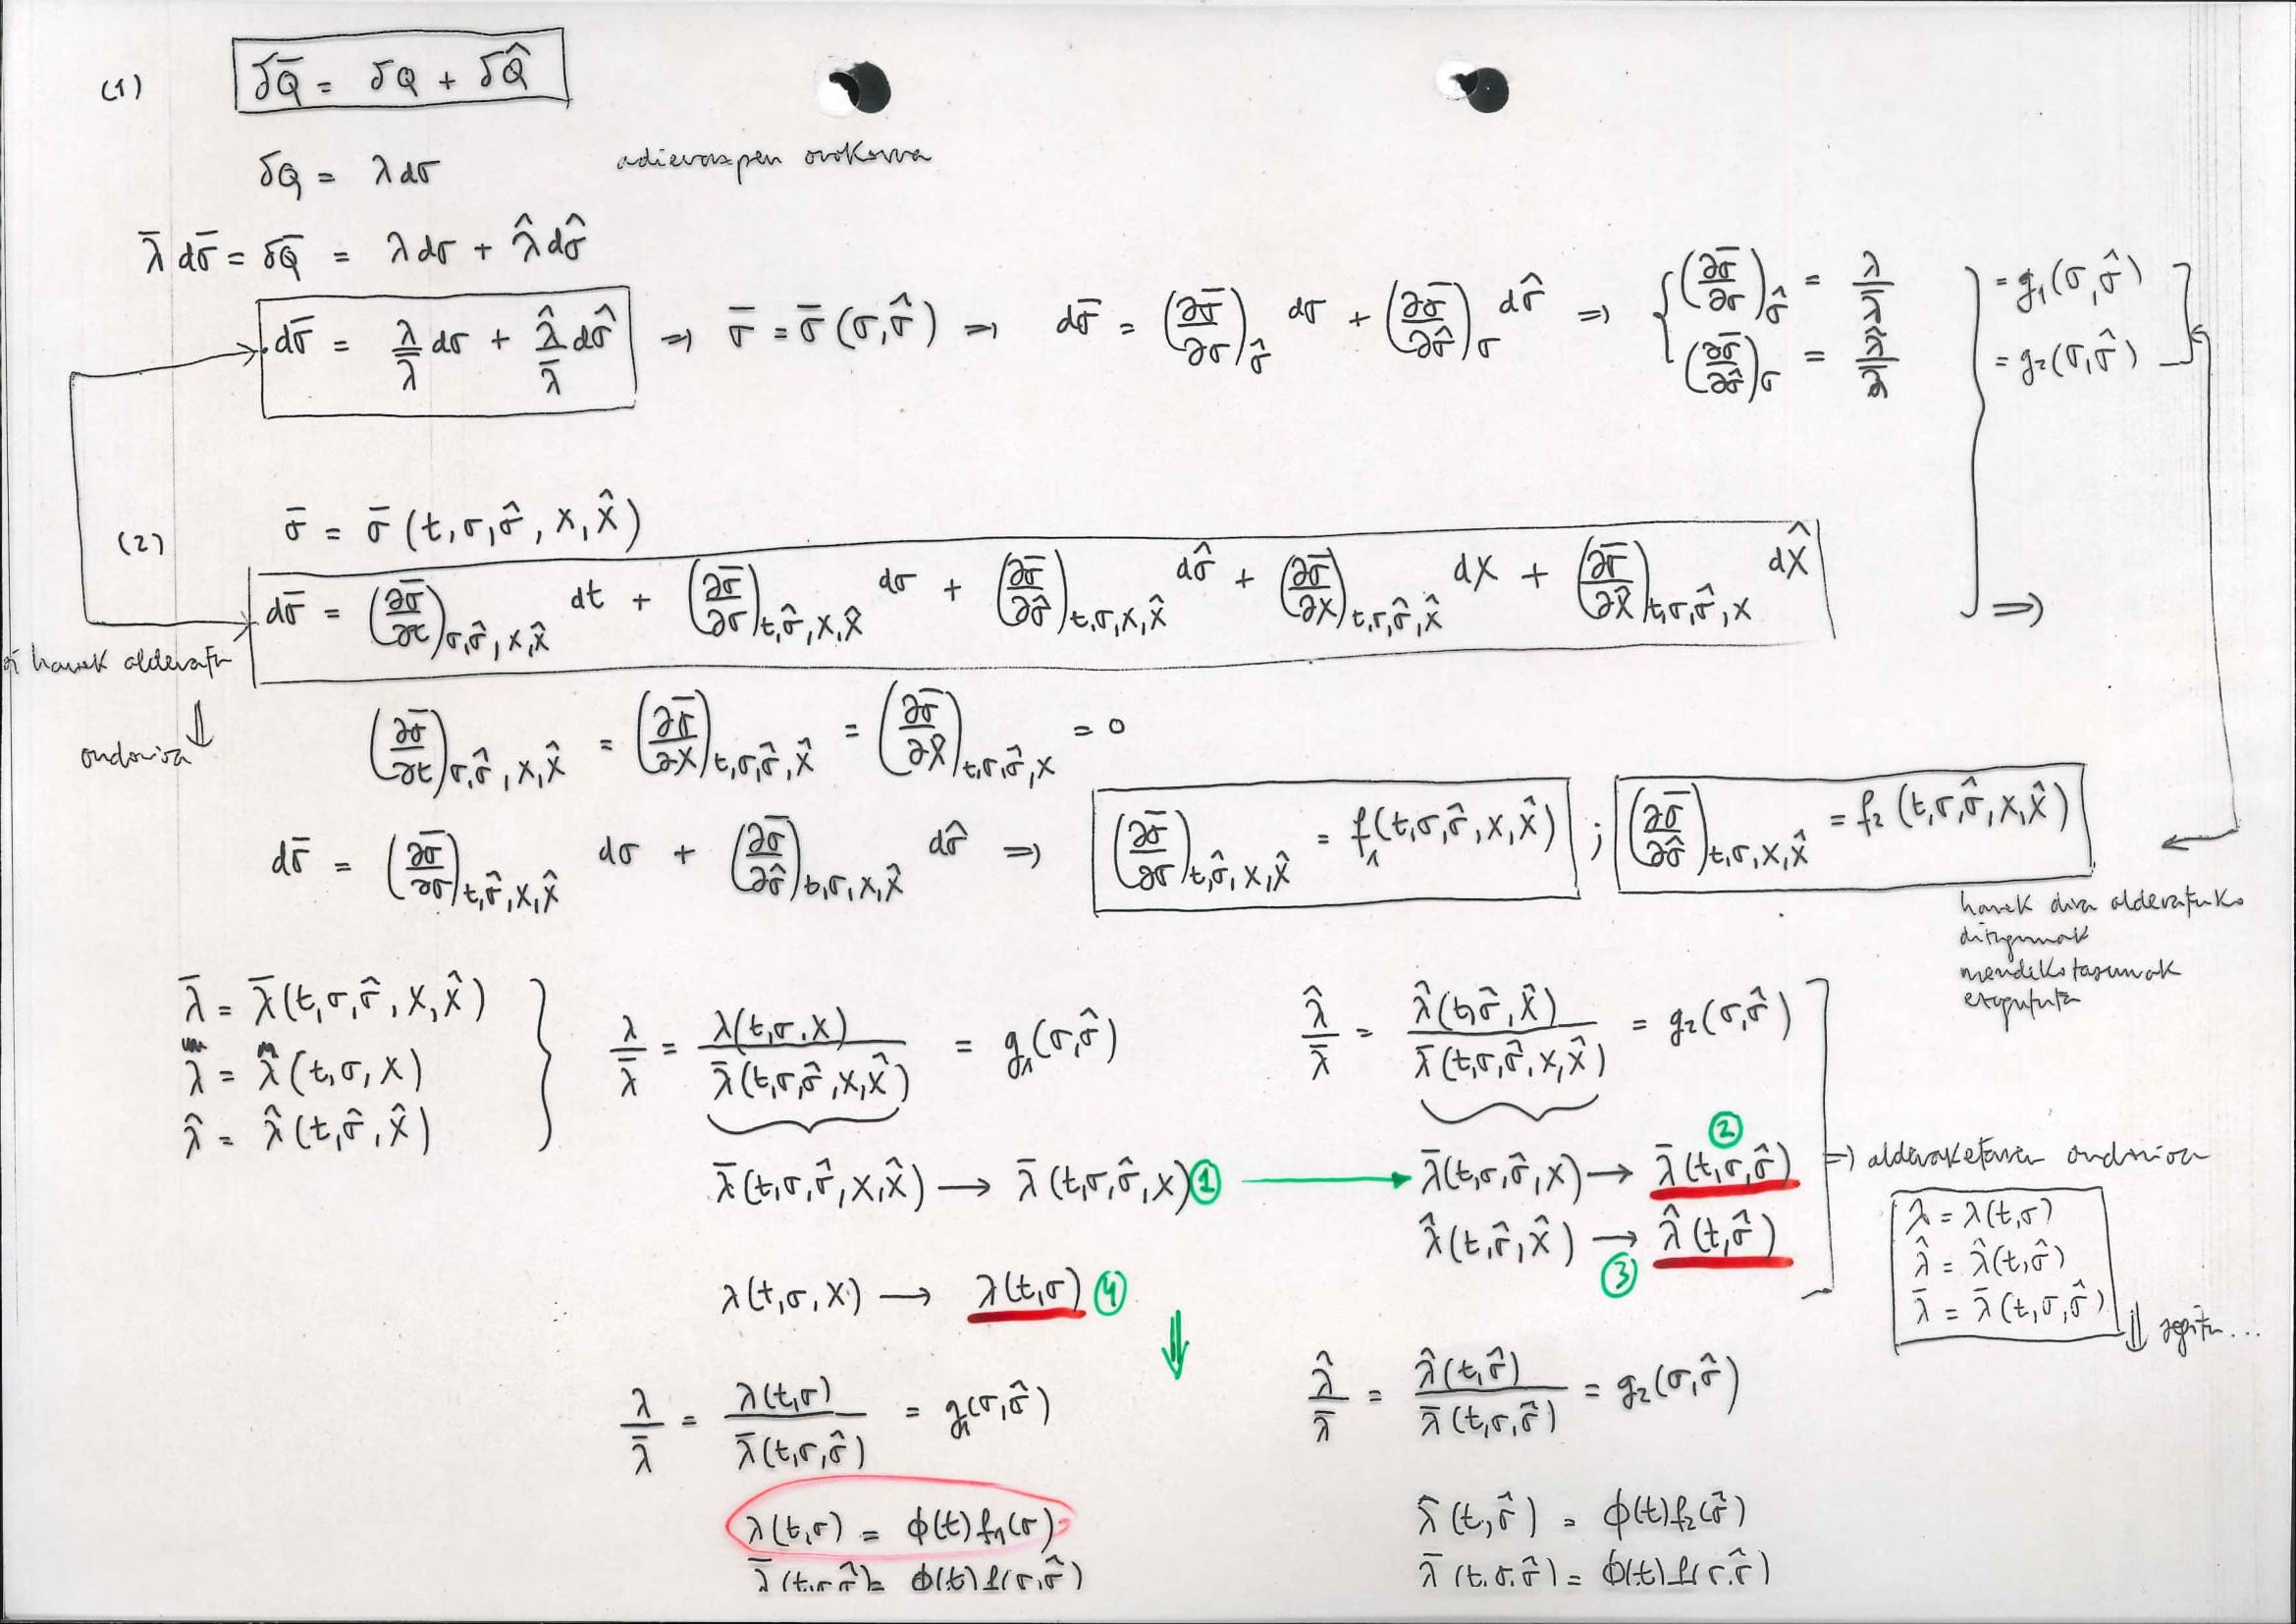 (1) δQ̄ = δQ + δQ̂
δQ = λdσ
adierazpen orokorra
λ̄ dσ̄ = δQ̄ = λdσ + λ̂dσ̂
dσ̄ = λ/λ̄ dσ + λ̂/λ̄ dσ̂ ⇒ σ̄ = σ̄(σ,σ̂) ⇒ dσ̄ = (∂σ̄/∂σ)_σ̂ dσ + (∂σ̄/∂σ̂)_σ dσ̂ ⇒ { (∂σ̄/∂σ)_σ̂ = λ/λ̄ } = g₁(σ,σ̂)
(∂σ̄/∂σ̂)_σ = λ̂/λ̄ = g₂(σ,σ̂)
(2) σ̄ = σ̄(t,σ,σ̂,X,X̂)
dσ̄ = (∂σ̄/∂t)_σ,σ̂,X,X̂ dt + (∂σ̄/∂σ)_t,σ̂,X,X̂ dσ + (∂σ̄/∂σ̂)_t,σ,X,X̂ dσ̂ + (∂σ̄/∂X)_t,σ,σ̂,X̂ dX + (∂σ̄/∂X̂)_t,σ,σ̂,X dX̂ ⇒
hauek alderatu
⇓
ondorioa
(∂σ̄/∂t)_σ,σ̂,X,X̂ = (∂σ̄/∂X)_t,σ,σ̂,X̂ = (∂σ̄/∂X̂)_t,σ,σ̂,X = 0
dσ̄ = (∂σ̄/∂σ)_t,σ̂,X,X̂ dσ + (∂σ̄/∂σ̂)_t,σ,X,X̂ dσ̂ ⇒ (∂σ̄/∂σ)_t,σ̂,X,X̂ = f₁(t,σ,σ̂,X,X̂) ; (∂σ̄/∂σ̂)_t,σ,X,X̂ = f₂(t,σ,σ̂,X,X̂)
hauek dira alderatuko
ditugunak
mendekotasunak
ezagututa
λ̄ = λ̄(t,σ,σ̂,X,X̂)
λ = λ(t,σ,X)
λ̂ = λ̂(t,σ̂,X̂)
λ/λ̄ = λ(t,σ,X)/λ̄(t,σ,σ̂,X,X̂) = g₁(σ,σ̂)
λ̂/λ̄ = λ̂(t,σ̂,X̂)/λ̄(t,σ,σ̂,X,X̂) = g₂(σ,σ̂)
λ̄(t,σ,σ̂,X,X̂) → λ̄(t,σ,σ̂,X) ① → λ̄(t,σ,σ̂,X) → λ̄(t,σ,σ̂) ②
λ̂(t,σ̂,X̂) → λ̂(t,σ̂) ③
λ(t,σ,X) → λ(t,σ) ④
⇒ alderaketaren ondorioa
λ = λ(t,σ)
λ̂ = λ̂(t,σ̂)
λ̄ = λ̄(t,σ,σ̂)
⇓ segitu...
λ/λ̄ = λ(t,σ)/λ̄(t,σ,σ̂) = g₁(σ,σ̂)
λ̂/λ̄ = λ̂(t,σ̂)/λ̄(t,σ,σ̂) = g₂(σ,σ̂)
λ(t,σ) = ϕ(t)f₁(σ)
λ̄(t,σ,σ̂) = ϕ(t)f(σ,σ̂)
λ̂(t,σ̂) = ϕ(t)f₂(σ̂)
λ̄(t,σ,σ̂) = ϕ(t)f(σ,σ̂)